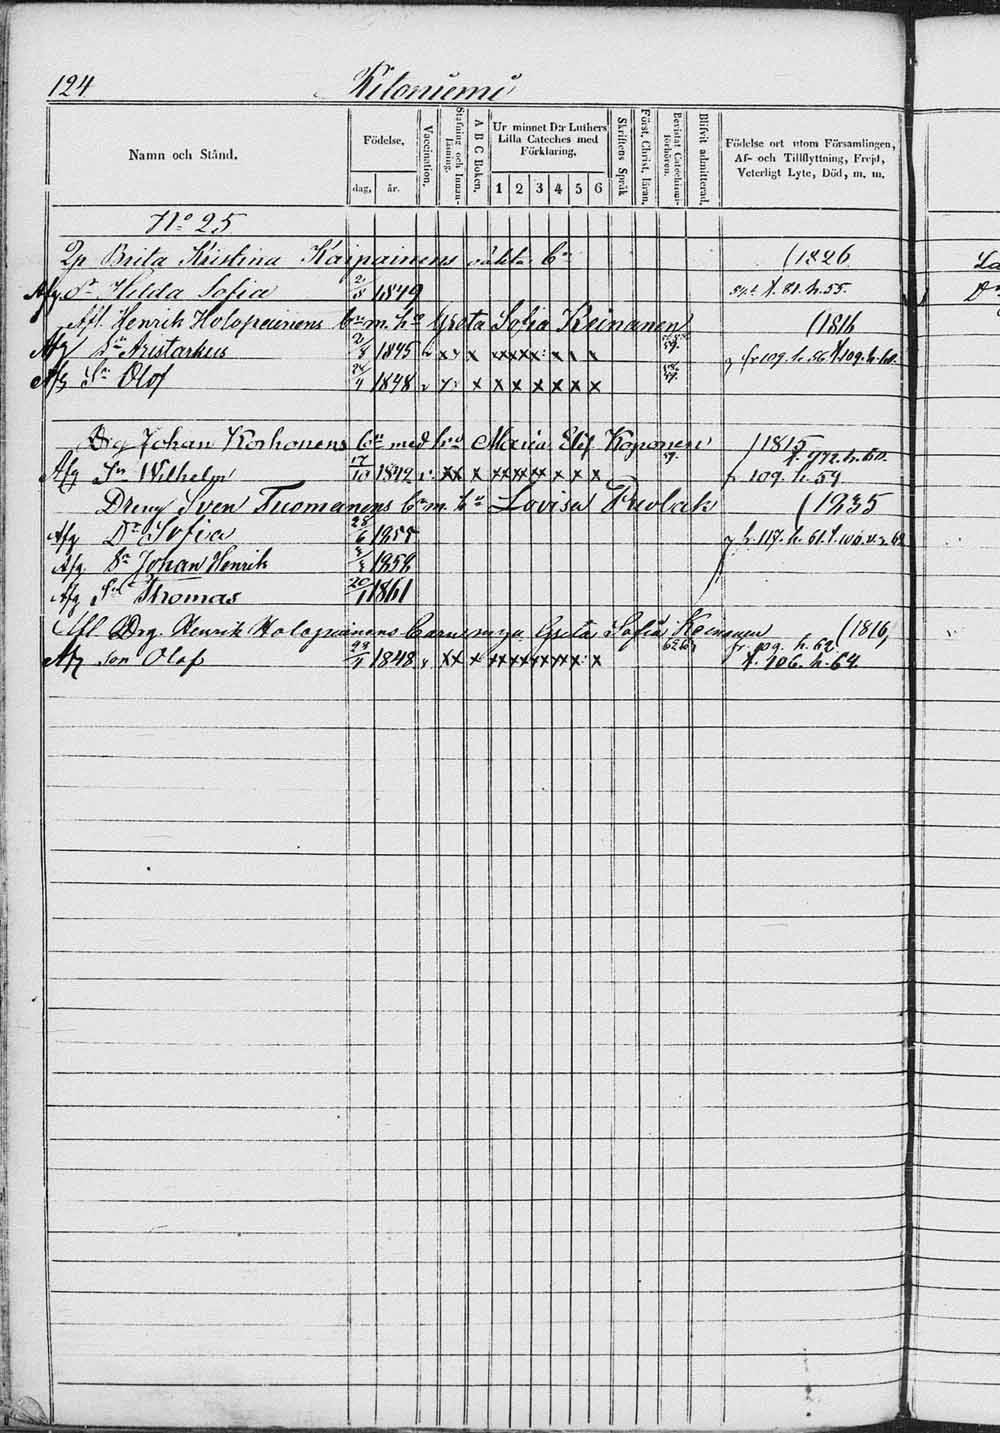 124 Kiloniemi
Namn och Stånd.
Födelse,
dag, år.
Vaccination.
Stafning och Innan-läsning.
A B C Boken.
Ur minnet D:r Luthers Lilla Cateches med Förklaring,
1 2 3 4 5 6
Skriftens Språk
Först. Christ. läran.
Bevistat Catechismi-förhören.
Blifvit admitterad.
Födelse ort utom Församlingen, Af- och Tillflyttning, Frejd, Veterligt Lyte, Död, m. m.
No 25
Qp Brita Kristina Kaipainens oäkta bn (1826
Afg. dr Hilda Sofia 2/8 1849 t. 81. h. 55.
Afl. Henrik Holopainens bn m. ho Greta Sofia Keinanen (1816
Afg Sn Aristarkus 2/8 1845 v x x x x x x x x x x fr 109. h. 56 t. 109. h. 60.
Afg Sn Olof 24/4 1848 v x x x x x x x x x
Drg Johan Korhonens bn med ho Maria Elis Koponen (1815
t. 972. h. 60.
Afg Sn Wilhelm 17/10 1842 v x x x x x x x x x fr 109. h. 59
Dreng Sven Tuomanens bn m. ho Lovisa (1835
Afg Dr Sofia 28/6 1855 fr. 117. h. 61.
Afg. Sn Johan Henrik 1858
Afg Sn Thomas 20/1 1861
Afl Drg. Henrik Holopainens barn m ho Greta Sofia Keinanen (1816,
fr. 109. h. 62.
Afg son Olof 24/4 1848 v x x x x x x x x x t. 106. h. 64.